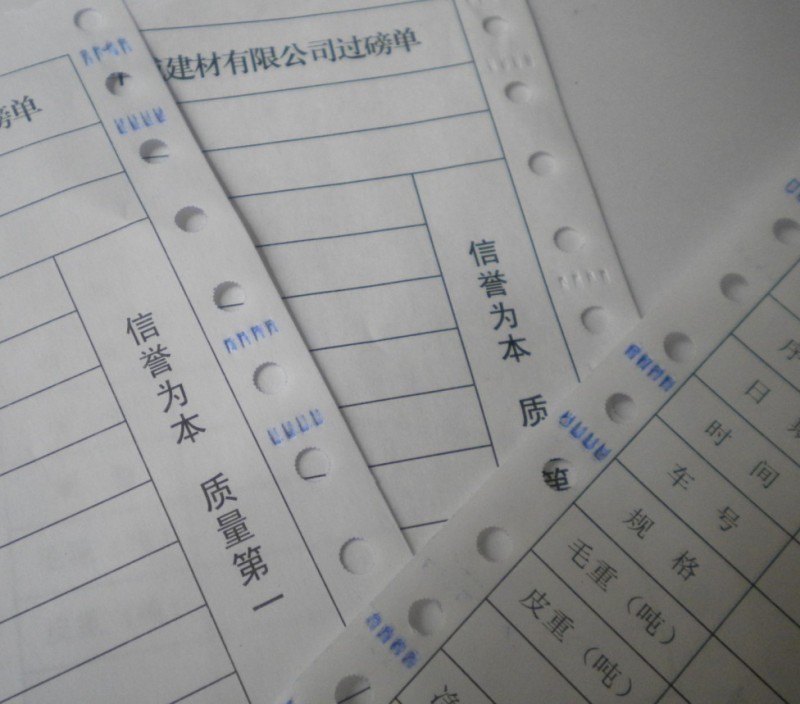 磅单
信誉为本 质量第一
建材有限公司过磅单
信誉为本 质
序
日
时 间
车 号
规 格
毛重（吨）
皮重（吨）